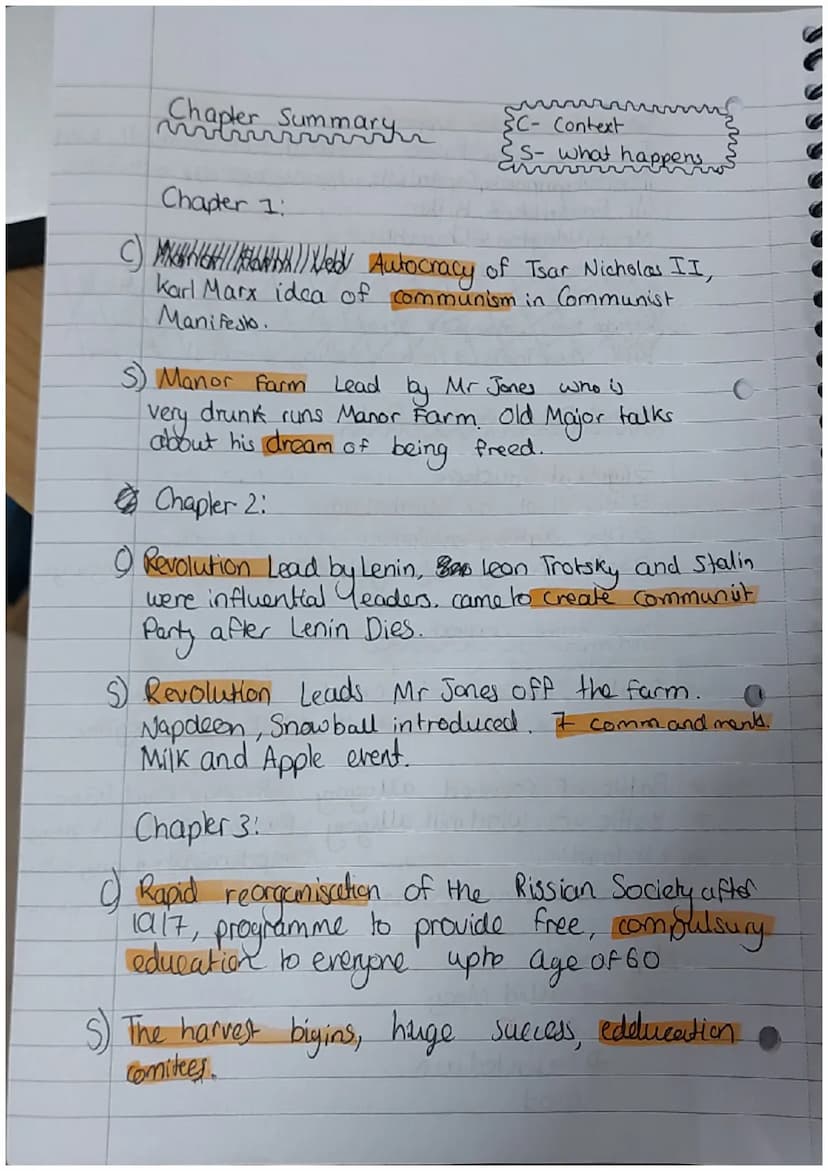 Chapter Summary
C- Context
S- what happens
Chapter 1:
C) Autocracy of Tsar Nicholas II,
Karl Marx idea of communism in Communist
Manifesto.
S) Manor Farm Lead by Mr Jones who is
very drunk runs Manor Farm. Old Major talks
about his dream of being freed.
Chapter 2:
C) Revolution Lead by Lenin, Leon Trotsky and Stalin
were influential leaders. came to create communist
Party after Lenin Dies.
S) Revolution Leads Mr Jones off the farm.
Napoleon, Snowball introduced. 7 commandments.
Milk and Apple event.
Chapter 3:
C) Rapid reorganisation of the Rissian Society after
1917, programme to provide free, compulsury
education to everyone upto age of 60
S) The harvest bigins, huge success, edducation
comitees.